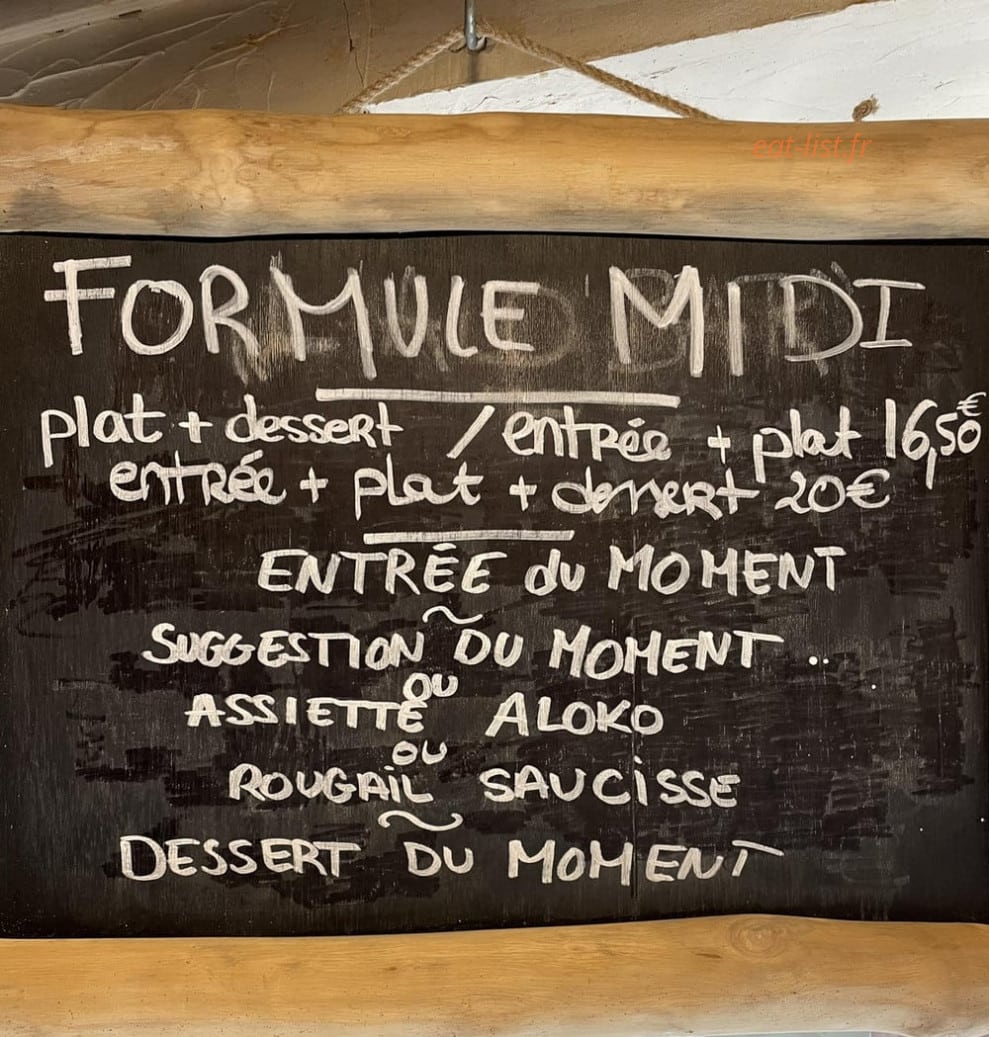 eat-list.fr
FORMULE MIDI
plat + dessert / entrée + plat 16,50€
entrée + plat + dessert 20€
ENTRÉE du MOMENT
~
SUGGESTION DU MOMENT ..
OU
ASSIETTE ALOKO
OU
ROUGAIL SAUCISSE
~
DESSERT DU MOMENT